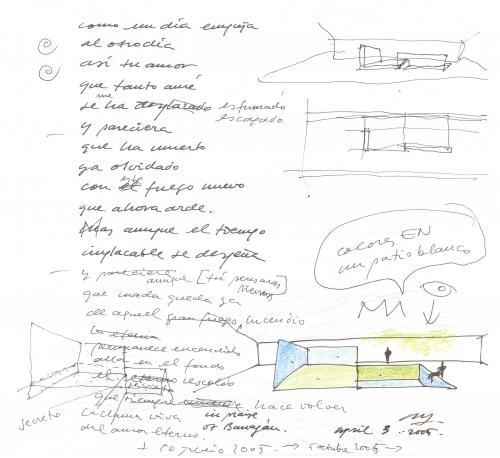 como un día empuja
al otro día
así tu amor
que tanto amé
se me ha desplazado esfumado
escapado
y pareciera
que ha muerto
ya olvidado
con el este fuego nuevo
que ahora arde.
Mas aunque el tiempo
implacable se despeña
y pareciera aunque [tú pensaras]
pienses
que nada queda ya
de aquel gran fuego incendio
La eterna
permanece encendido
allá en el fondo
el rescoldo
secreto
que siempre hace volver
secreto
La llama viva
del amor eterno.
in praise
of Barragán.
colores EN
un patio blanco
april 3. 2005.
10 junio 2005. → 5 octubre 2005 →